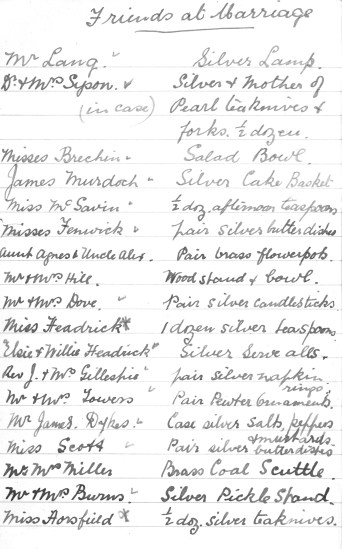 Friends at Marriage
Mr Lang " Silver Lamp.
Dr & Mrs Syson. " Silver & Mother of
(in case) Pearl teaknives &
forks. ½ dozen.
Misses Brechin " Salad Bowl.
James Murdoch " Silver Cake Basket
Miss McSavin " ½ doz. afternoon teaspoons
"Misses Fenwick " pair silver butter dishes
Aunt Agnes & Uncle Alex. Pair brass flowerpots.
Mr & Mrs Hill. Wood stand & bowl.
Mr & Mrs Dove. " Pair silver candlesticks.
Miss Headrick * 1 dozen silver teaspoons
"Elsie & Willie Headrick" Silver Serve alls.
Rev J. & Mrs Gillespie " pair silver napkin
rings.
Mr & Mrs Towers " Pair Pewter ornaments.
Mr James Dykes. " Case silver salts, peppers
& mustards.
Miss Scott " Pair silver butter dishes
Mr Miller Brass Coal Scuttle.
Mr & Mrs Burns. " Silver Pickle Stand.
Miss Horsfield * ½ doz. silver teaknives.